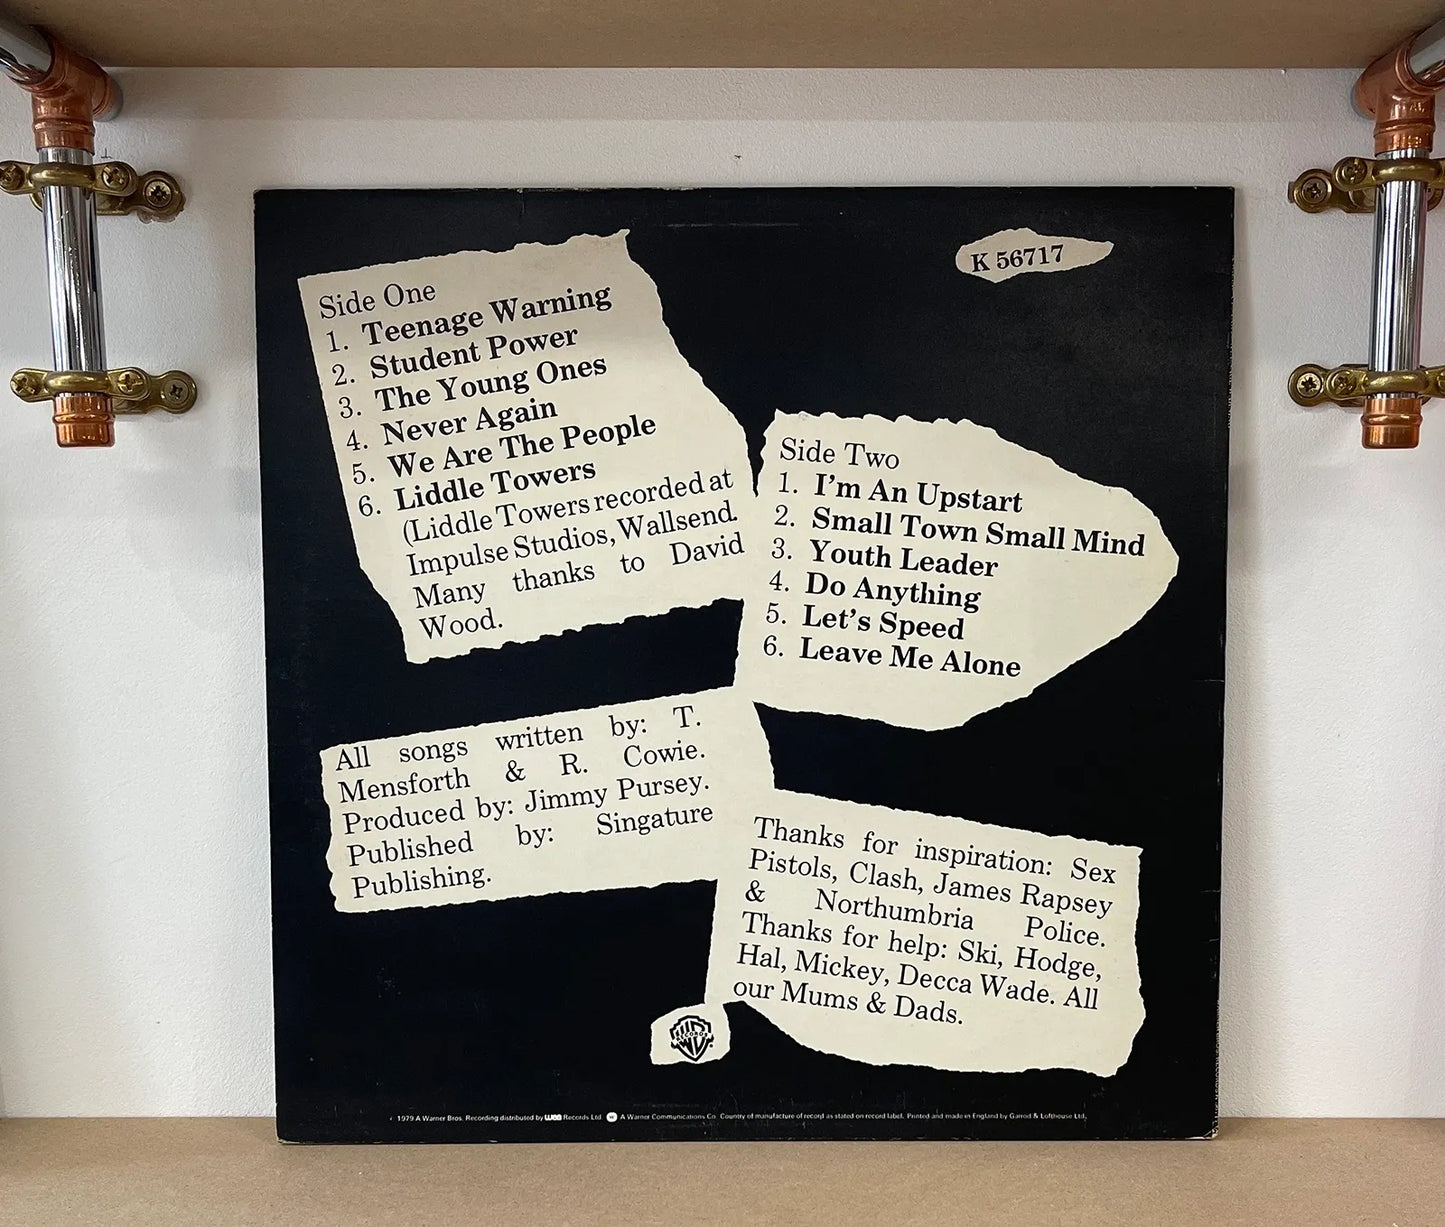 K 56717
Side One
1. Teenage Warning
2. Student Power
3. The Young Ones
4. Never Again
5. We Are The People
6. Liddle Towers
(Liddle Towers recorded at
Impulse Studios, Wallsend.
Many thanks to David
Wood.
Side Two
1. I'm An Upstart
2. Small Town Small Mind
3. Youth Leader
4. Do Anything
5. Let's Speed
6. Leave Me Alone
All songs written by: T.
Mensforth & R. Cowie.
Produced by: Jimmy Pursey.
Published by: Singature
Publishing.
Thanks for inspiration: Sex
Pistols, Clash, James Rapsey
& Northumbria Police.
Thanks for help: Ski, Hodge,
Hal, Mickey, Decca Wade. All
our Mums & Dads.
RECORDS
1979 A Warner Bros. Recording distributed by wea Records Ltd. A Warner Communications Co. Country of manufacture of record as stated on record label. Printed and made in England by Garrod & Lofthouse Ltd.